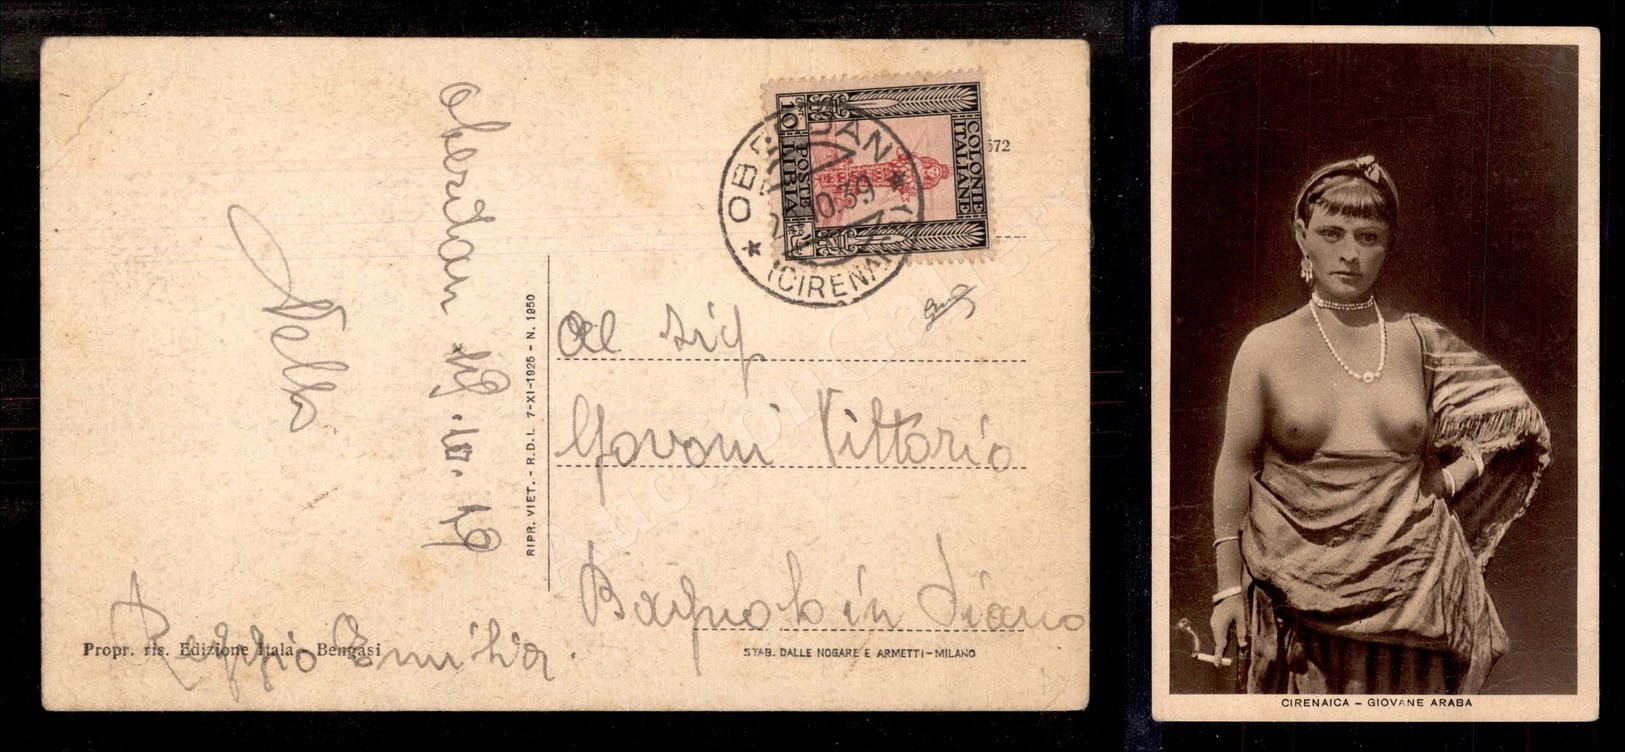 COLONIE
ITALIANE
10
POSTE
LIBIA
OBERDAN
10.39
(CIRENAICA)
572
Oberdan
19.10.39
Nello
Al sig
Govoni Vittorio
Bagnolo in Piano
Reggio Emilia.
RIPR. VIET. - R.D.L. 7-XI-1925 - N. 1950
Propr. ris. Edizione Itala - Bengasi
STAB. DALLE NOGARE E ARMETTI - MILANO
CIRENAICA - GIOVANE ARABA